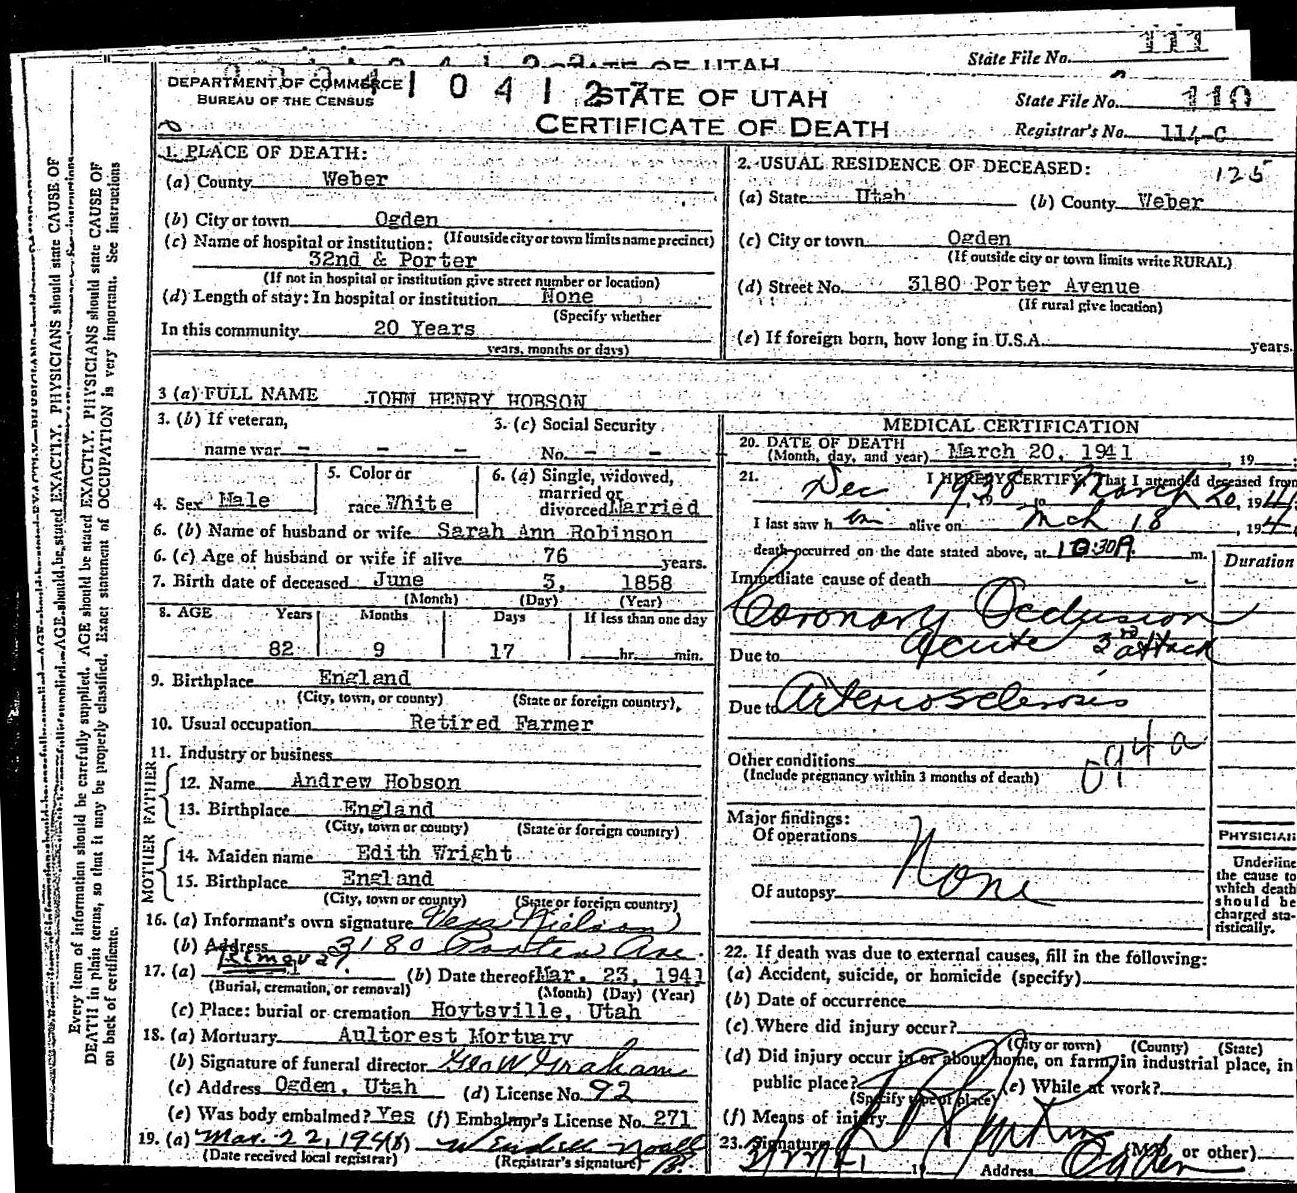 111
STATE OF UTAH
State File No.
DEPARTMENT OF COMMERCE
BUREAU OF THE CENSUS
1 0 4 1 2
STATE OF UTAH
CERTIFICATE OF DEATH
State File No. 110
Registrar's No. 114-C
1. PLACE OF DEATH:
(a) County Weber
(b) City or town Ogden
(If outside city or town limits name precinct)
(c) Name of hospital or institution:
32nd & Porter
(If not in hospital or institution give street number or location)
(d) Length of stay: In hospital or institution None
(Specify whether
In this community 20 Years
years, months or days)
2. USUAL RESIDENCE OF DECEASED:
125
(a) State Utah (b) County Weber
(c) City or town Ogden
(If outside city or town limits write RURAL)
(d) Street No. 3180 Porter Avenue
(If rural give location)
(e) If foreign born, how long in U.S.A. years.
3 (a) FULL NAME JOHN HENRY HOBSON
3. (b) If veteran,
name war - - -
3. (c) Social Security
No. - - -
4. Sex Male
5. Color or
race White
6. (a) Single, widowed,
married or
divorced Married
6. (b) Name of husband or wife Sarah Ann Robinson
6. (c) Age of husband or wife if alive 76 years.
7. Birth date of deceased June 3, 1858
(Month) (Day) (Year)
8. AGE Years Months Days If less than one day
82 9 17 hr. min.
9. Birthplace England
(City, town, or county) (State or foreign country)
10. Usual occupation Retired Farmer
11. Industry or business
FATHER
12. Name Andrew Hobson
13. Birthplace England
(City, town or county) (State or foreign country)
MOTHER
14. Maiden name Edith Wright
15. Birthplace England
(City, town or county) (State or foreign country)
16. (a) Informant's own signature Vera Nielson
(b) Address 3180 Porter Ave.
17. (a) Removal (b) Date thereof Mar. 23, 1941
(Burial, cremation, or removal) (Month) (Day) (Year)
(c) Place: burial or cremation Hoytsville, Utah
18. (a) Mortuary Aultorest Mortuary
(b) Signature of funeral director Geo W Graham
(c) Address Ogden, Utah (d) License No. 92
(e) Was body embalmed? Yes (f) Embalmer's License No. 271
19. (a) Mar. 22, 1941 (b)
(Date received local registrar) (Registrar's signature)
MEDICAL CERTIFICATION
20. DATE OF DEATH
(Month, day, and year) March 20, 1941, 19
21. I HEREBY CERTIFY, That I attended deceased from
Dec 1938, 19 to March 20, 1941
I last saw him alive on Mch 18, 194
death occurred on the date stated above, at 10:30A. m.
Duration
Immediate cause of death
Coronary Occlusion
acute 3rd attack
Due to
Due to Arteriosclerosis
094a
Other conditions
(Include pregnancy within 3 months of death)
Major findings:
Of operations
None
Of autopsy
PHYSICIAN
Underline
the cause to
which death
should be
charged sta-
tistically.
22. If death was due to external causes, fill in the following:
(a) Accident, suicide, or homicide (specify)
(b) Date of occurrence
(c) Where did injury occur?
(City or town) (County) (State)
(d) Did injury occur in or about home, on farm, in industrial place, in
public place? (e) While at work?
(Specify type of place)
(f) Means of injury
23. Signature (M.D. or other)
19 Address Ogden
Every item of information should be carefully supplied. AGE should be stated EXACTLY. PHYSICIANS should state CAUSE OF
DEATH in plain terms, so that it may be properly classified. Exact statement of OCCUPATION is very important. See instructions
on back of certificate.